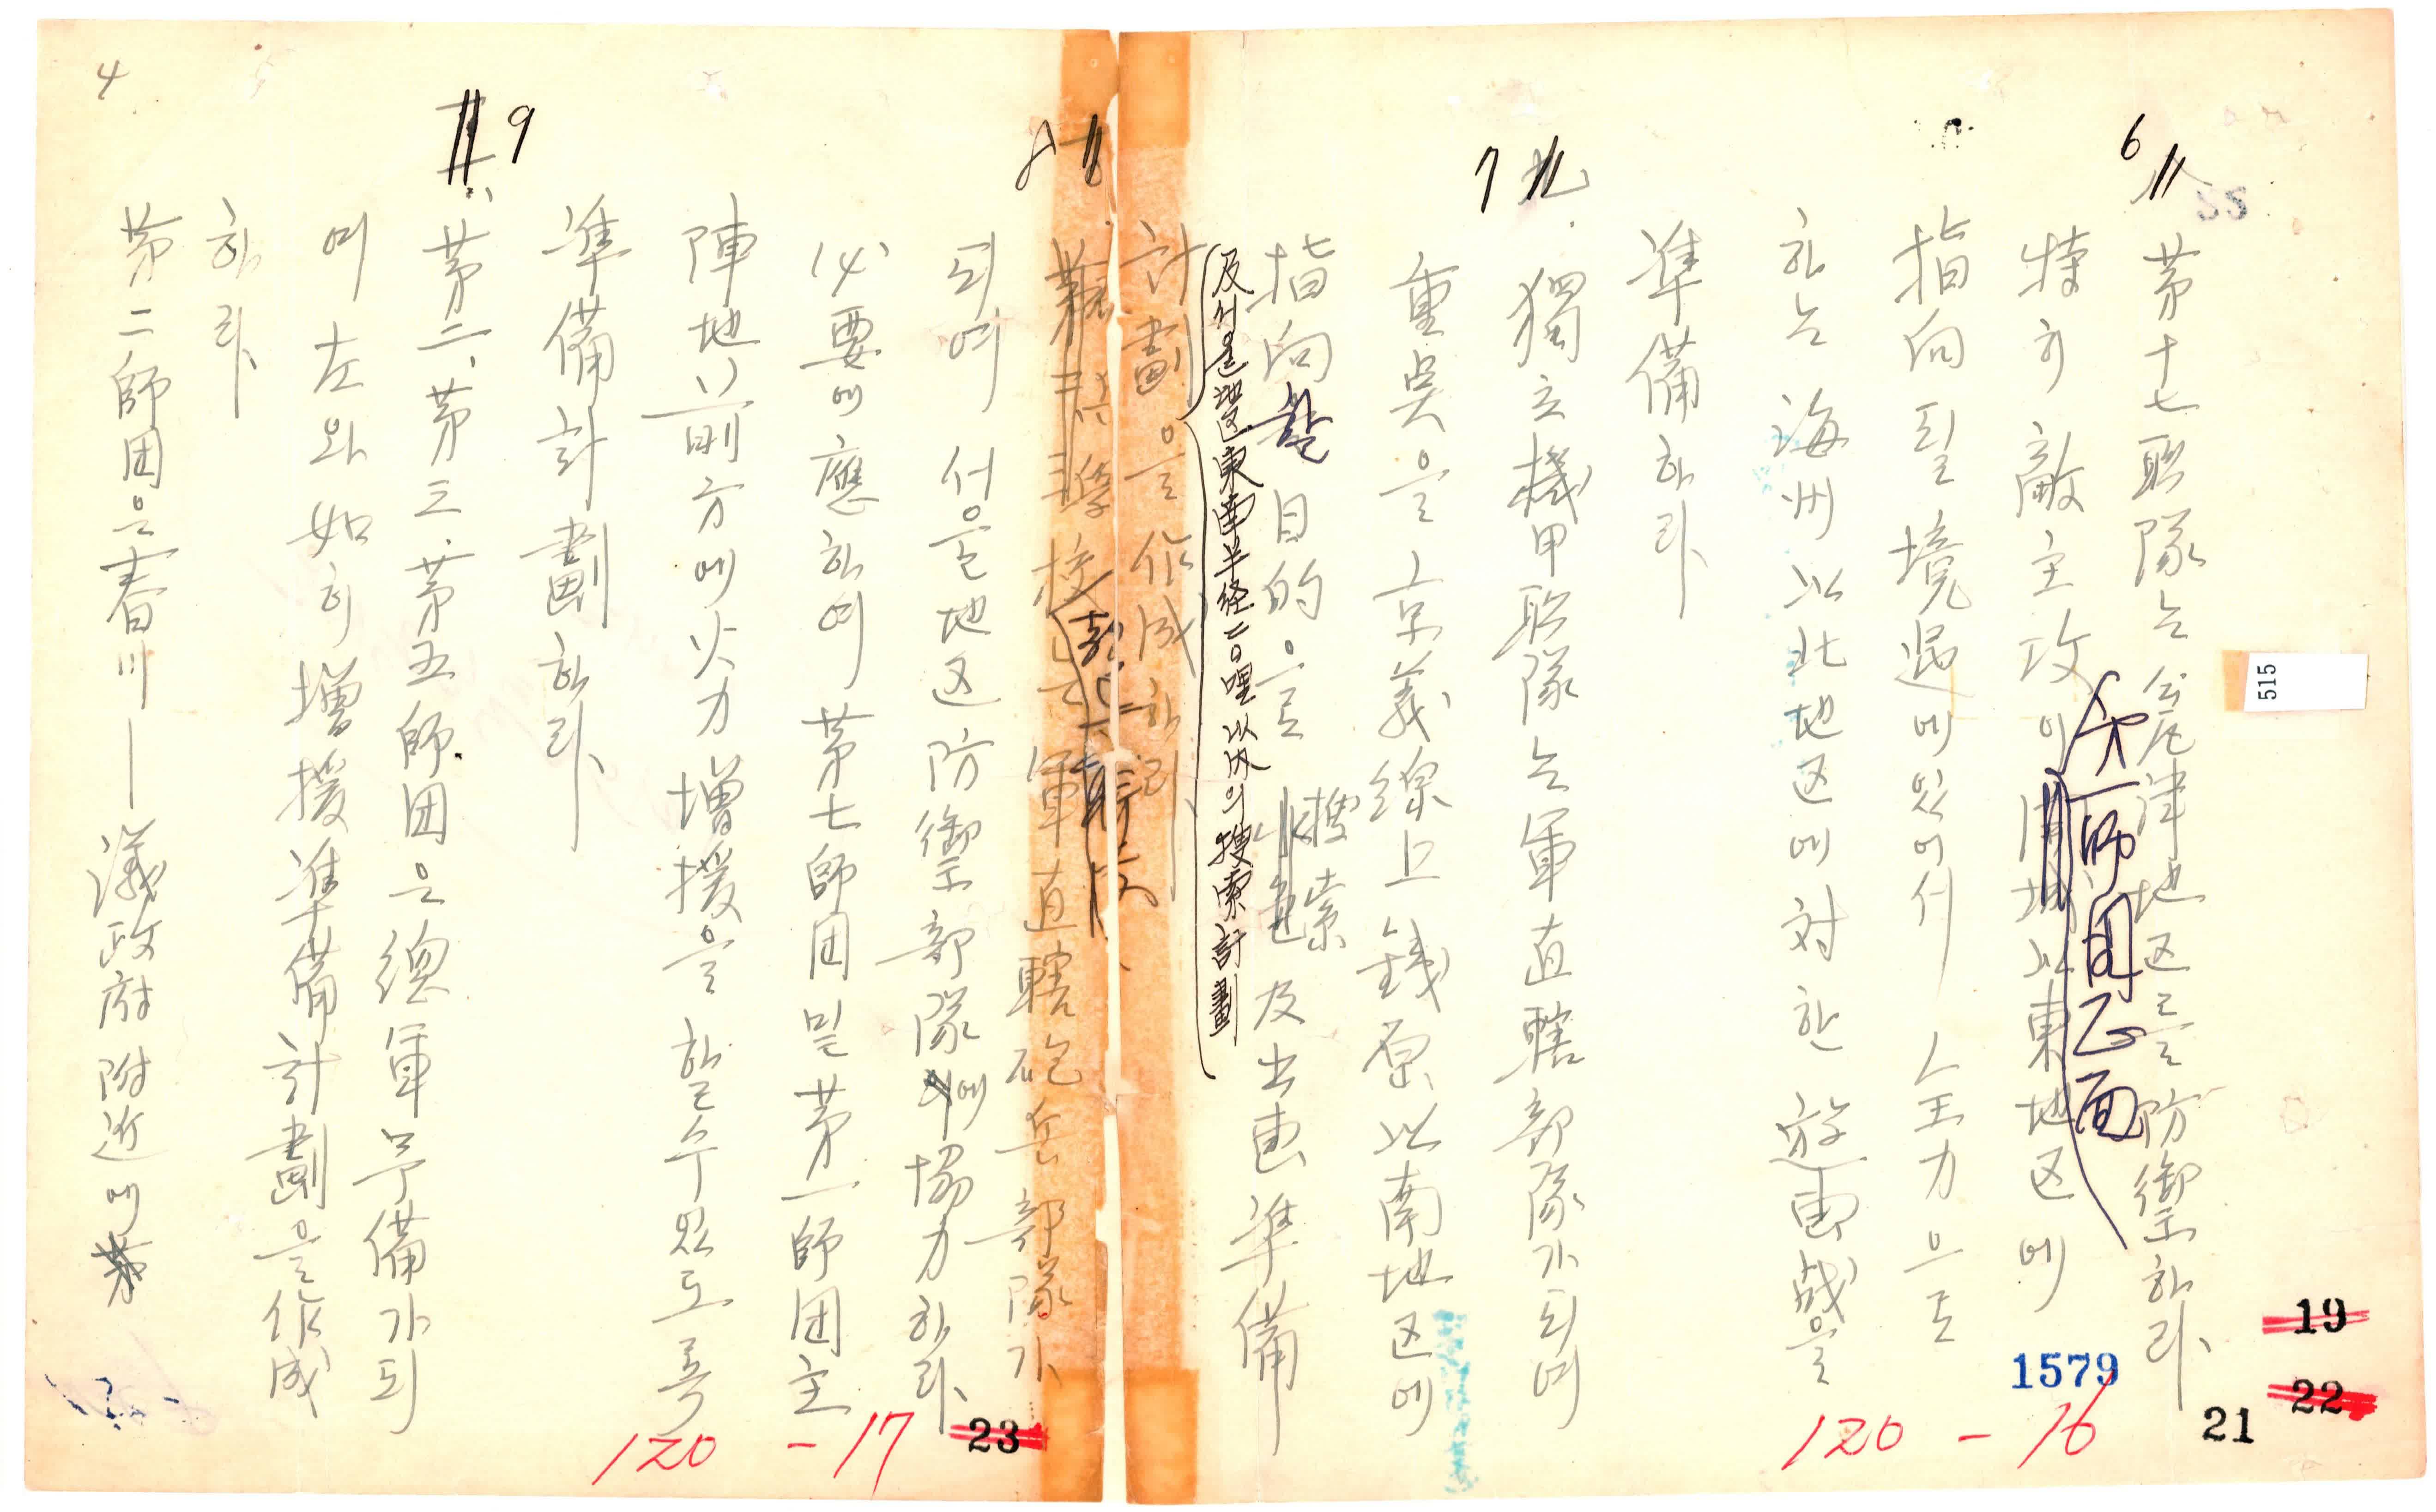 6
第十七聯隊는 瓮津地区를 防禦하라
特히 敵主攻이 開城以東地区에
第一師団正面
指向될 境遇에 있어서 全力으로
하는 海州以北地区에 対한 遊擊戰을
準備하라
7 九.
獨立機甲聯隊는 軍直轄部隊가 되여
重奌을 京義線上 鐵原以南地区에
指向할 目的으로 搜索 及 出擊準備
及 서울地区東南半径二〇哩以内의 搜索計劃
計劃을 作成하라
8
軍直轄砲兵部隊가
되여 서울地区防禦部隊에 協力하라
必要에 應하여 第七師団 및 第一師団主
陣地前方에 火力增援을 할 수 있도록
準備計劃하라
9
第二、第三、第五師団은 總軍予備가 되
여 左와 如히 增援準備計劃을 作成
하라
第二師団은 春川—議政府附近에
4
515
19
22
21
1579
120-16
23
120-17